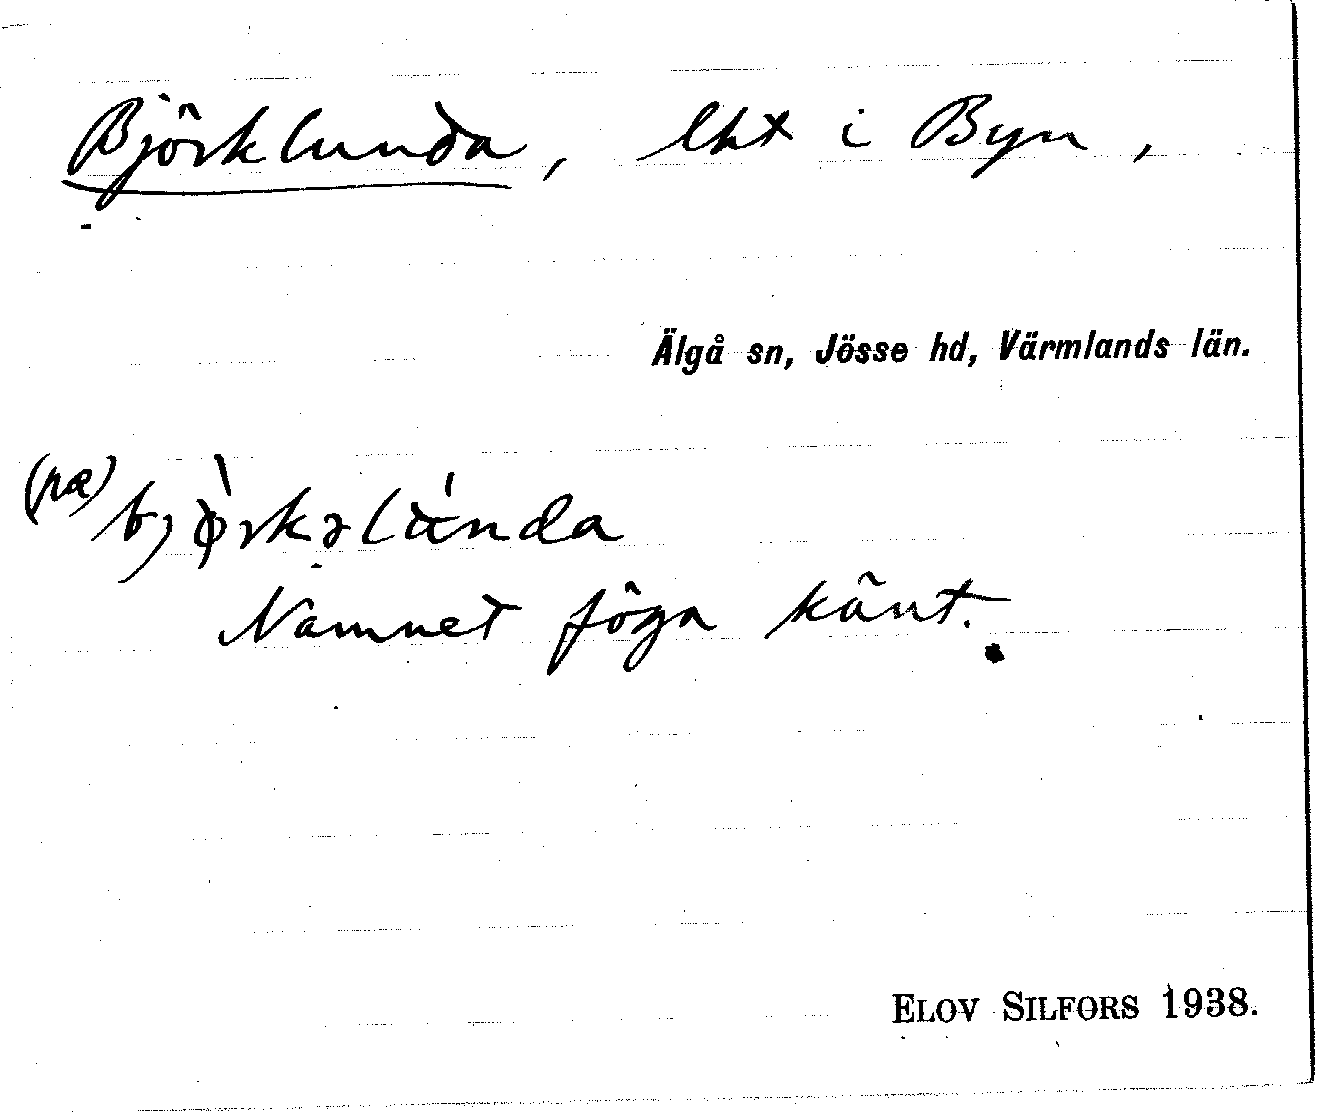 Björklunda, lht i Byn,
Älgå sn, Jösse hd, Värmlands län.
(på) bjø̀rkəlúnda
Namnet föga känt.
ELOV SILFORS 1938.